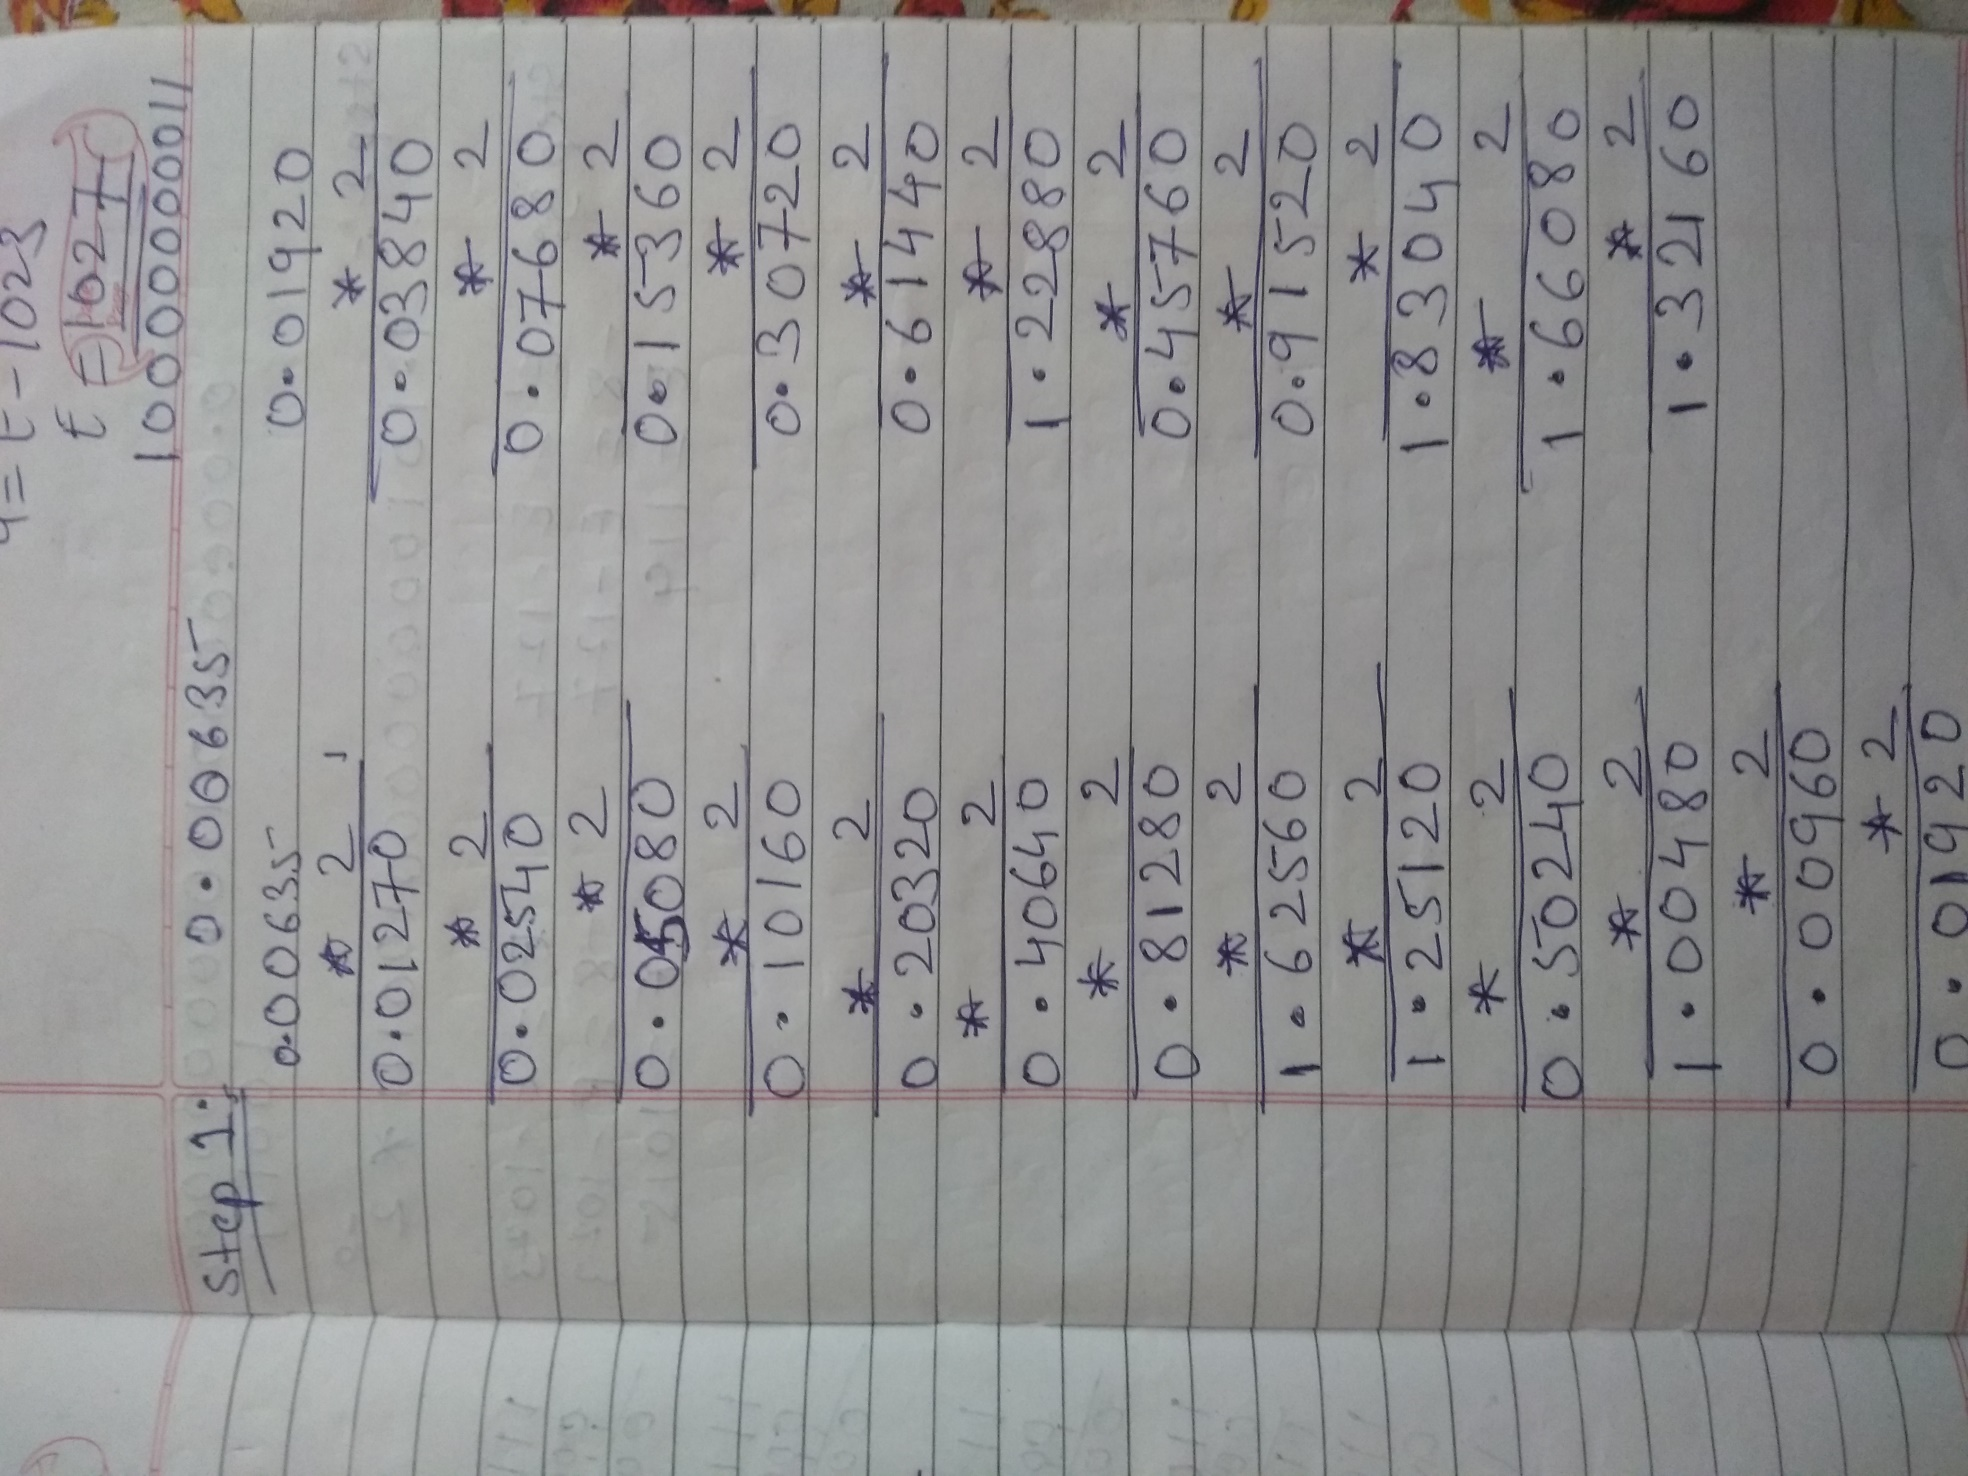 4 = E - 1023
E = 1027
10000000011
Step 1: 0.00635
0.00635
* 2
0.01270
* 2
0.02540
* 2
0.05080
* 2
0.10160
* 2
0.20320
* 2
0.40640
* 2
0.81280
* 2
1.62560
* 2
1.25120
* 2
0.50240
* 2
1.00480
* 2
0.00960
* 2
0.01920
0.01920
* 2
0.03840
* 2
0.07680
* 2
0.15360
* 2
0.30720
* 2
0.61440
* 2
1.22880
* 2
0.45760
* 2
0.91520
* 2
1.83040
* 2
1.66080
* 2
1.32160